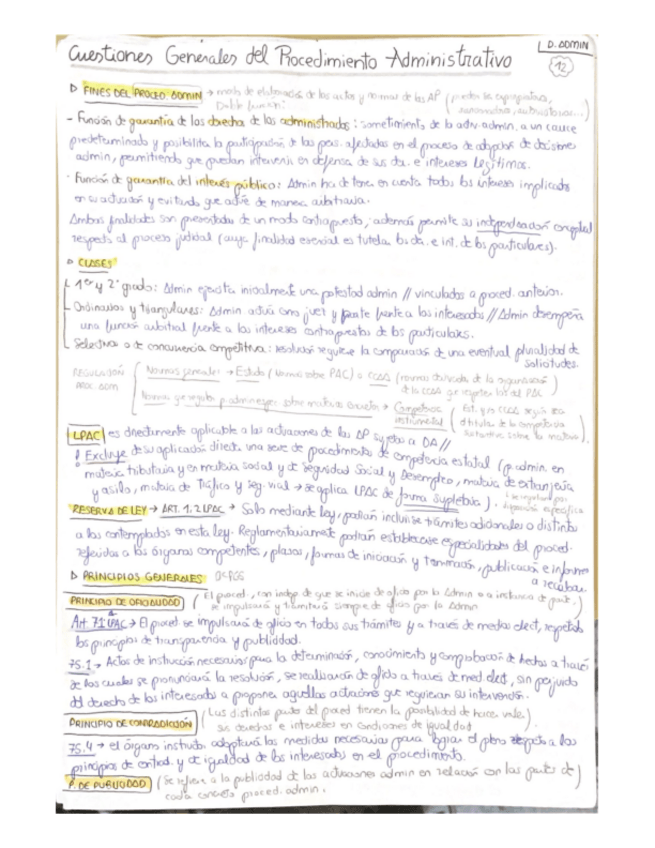 Cuestiones Generales del Procedimiento Administrativo
D. ADMIN
12
FINES DEL PROCED. ADMIN → modo de elaboración de los actos y normas de las AP (pueden ser expropiatorios,
Doble función:
- Función de garantía de los derechos de los administrados: sometimiento de la activ. admin. a un cauce
predeterminado y posibilita la participación de las pers. afectadas en el proceso de adopción de decisiones
admin, permitiendo que puedan intervenir en defensa de sus der. e intereses legítimos.
- Función de garantía del interés público: Admin ha de tener en cuenta todos los intereses implicados
en su actuación y evitando que actúe de manera arbitraria.
Ambas finalidades son presentadas de un modo contrapuesto, además permite su independización conceptual
respecto al proceso judicial (cuya finalidad esencial es tutela los de. e int. de los particulares).
CLASES
1er y 2º grado: Admin ejercita inicialmente una potestad admin // vinculados a proced. anterior.
Ordinarios y triangulares: Admin actúa como juez y parte frente a los interesados // Admin desempeña
una función arbitral frente a los intereses contrapuestos de los particulares.
Selectivos o de concurrencia competitiva: resolución requiere la comparación de una eventual pluralidad de
solicitudes.
REGULACIÓN
PROC. ADM
Normas generales → Estado (normas sobre PAC) o CCAA (normas derivadas de la organización
de la CCAA que respeten las del PAC)
Normas que regulan p. admin esper sobre materias concretas → Competencia
instrumental
(Est. y/o CCAA según sea
el titular de la competencia
sustantiva sobre la materia)
LPAC es directamente aplicable a las actuaciones de las AP sujetas a DA //
! Excluye de su aplicación directa una serie de procedimientos de competencia estatal (p. admin. en
materia tributaria y en materia social y de Seguridad Social y Desempleo, materia de extranjería
y asilo, materia de Tráfico y seg. vial → se aplica LPAC de forma supletoria).
se regulan por
disposición específica
RESERVA DE LEY → ART. 1.2 LPAC → Solo mediante Ley, podrán incluirse trámites adicionales o distintos
a los contemplados en esta ley. Reglamentariamente podrán establecerse especialidades del proced.
referidas a los órganos competentes, plazos, formas de iniciación y terminación, publicación e informes
a recabar.
PRINCIPIOS GENERALES
PRINCIPIO DE OFICIALIDAD (El proced., con indep. de que se inicie de oficio por la Admin o a instancia de parte,
se impulsará y tramitará siempre de oficio por la Admin
Art. 71 LPAC → El proced se impulsará de oficio en todos sus trámites y a través de medios elect, respetando
los principios de transparencia y publicidad.
75.1 → Actos de instrucción necesarios para la determinación, conocimiento y comprobación de hechos a través
de los cuales se pronunciará la resolución, se realizarán de oficio a través de med elect, sin perjuicio
del derecho de los interesados a proponer aquellas actuaciones que requieran su intervención.
PRINCIPIO DE CONTRADICCIÓN (Las distintas partes del proced tienen la posibilidad de hacer valer
sus derechos e intereses en condiciones de igualdad)
75.4 → el órgano instructor adoptará las medidas necesarias para lograr el pleno respeto a los
principios de contrad. y de igualdad de los interesados en el procedimiento.
P. DE PUBLICIDAD (Se refiere a la publicidad de las actuaciones admin en relación con las partes de
cada concreto proced. admin.